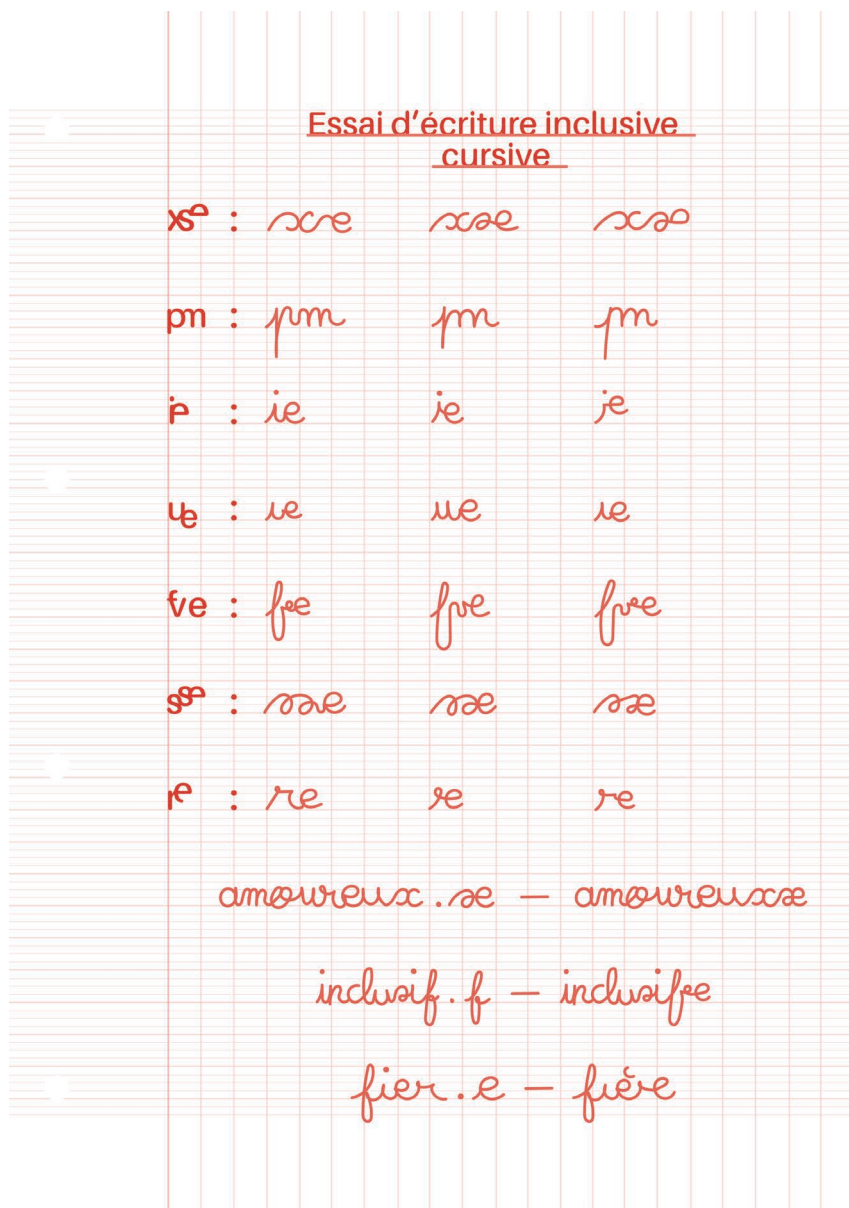 Essai d’écriture inclusive
cursive
xse : xse xse xse
pm : pm pm pm
ie : ie ie ie
ue : ue ue ue
fve : fve fve fve
sse : sse sse sse
re : re re re
amoureux.se — amoureuxse
inclusif.f — inclusifve
fier.e — fière